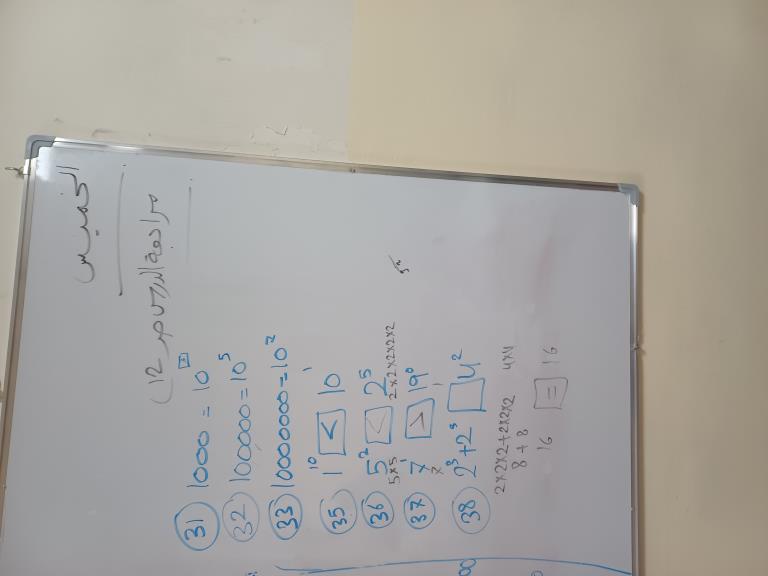 الخميس
مراجعة الدروس ص 12
31 1000 = 10³
32 100000 = 10⁵
33 10000000 = 10⁷
35 1¹⁰ < 10¹
36 5² < 2⁵
5×5 2×2×2×2×2
37 7¹ > 19⁰
7 1
38 2³ + 2³ □ 4²
2×2×2+2×2×2 4×4
8 + 8
16 = 16